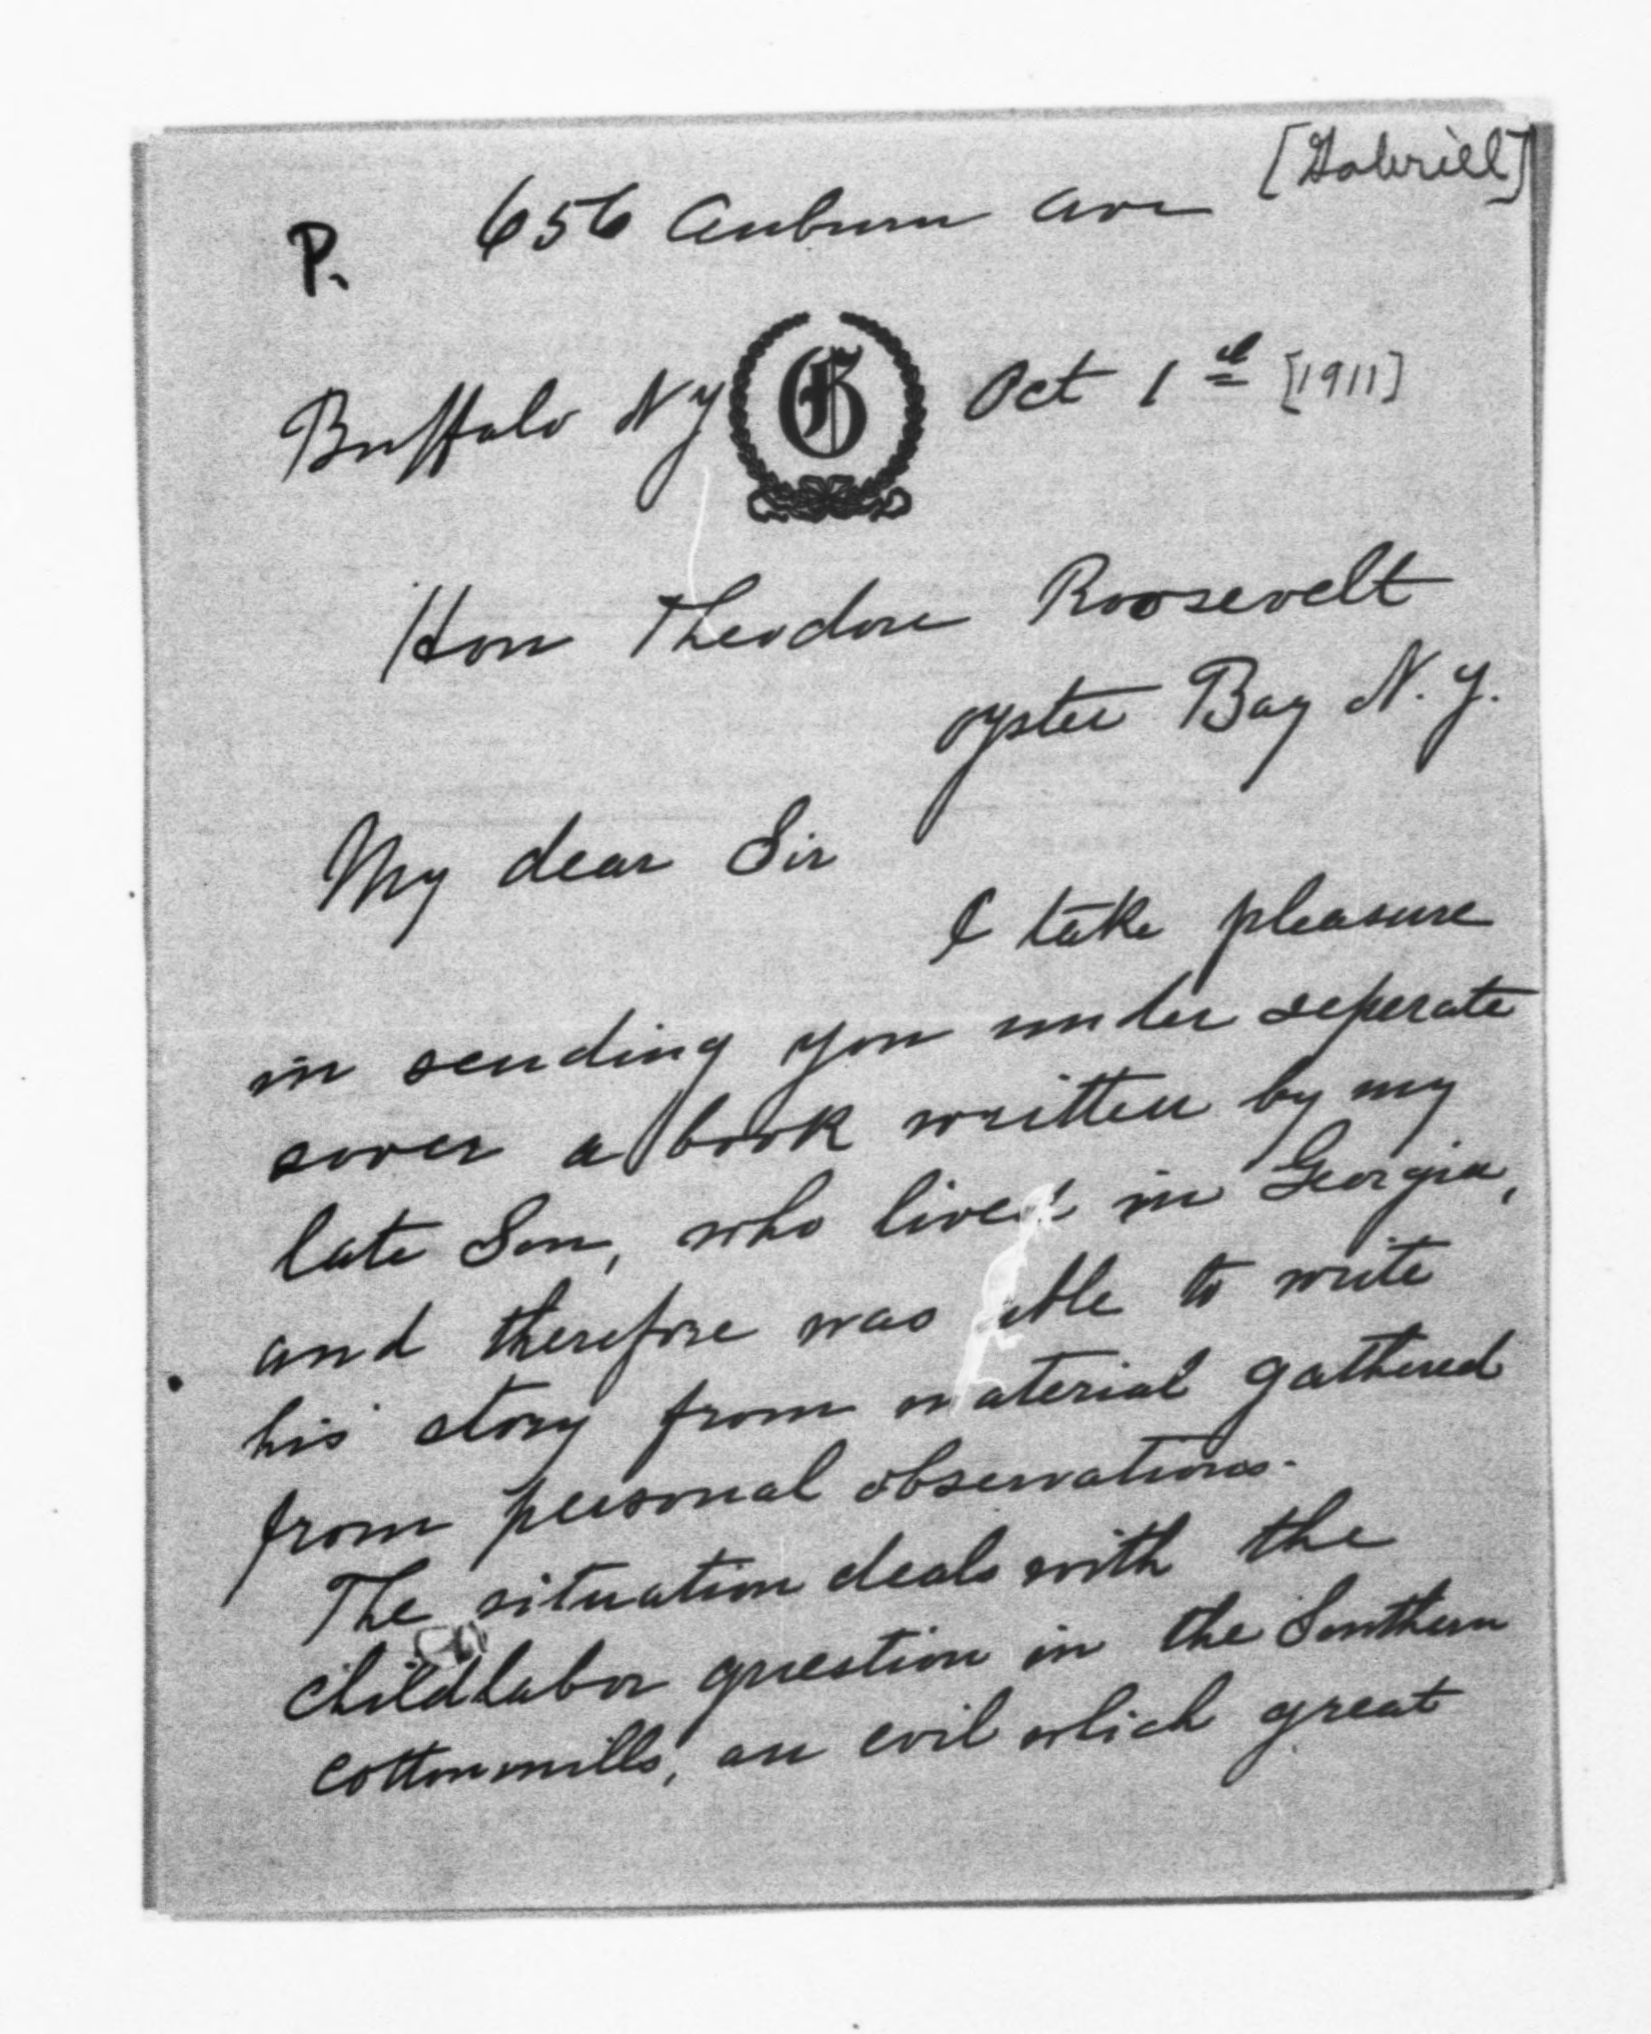 [Gabriell]
P. 656 Auburn Ave
Buffalo NY G Oct 1st [1911]
Hon Theodore Roosevelt
Oyster Bay N.Y.
My dear Sir
I take pleasure
in sending you under seperate
cover a book written by my
late Son, who lived in Georgia,
and therefore was able to write
his story from material gathered
from personal observations.
The situation deals with the
childlabor question in the Southern
cottonmills, an evil which great